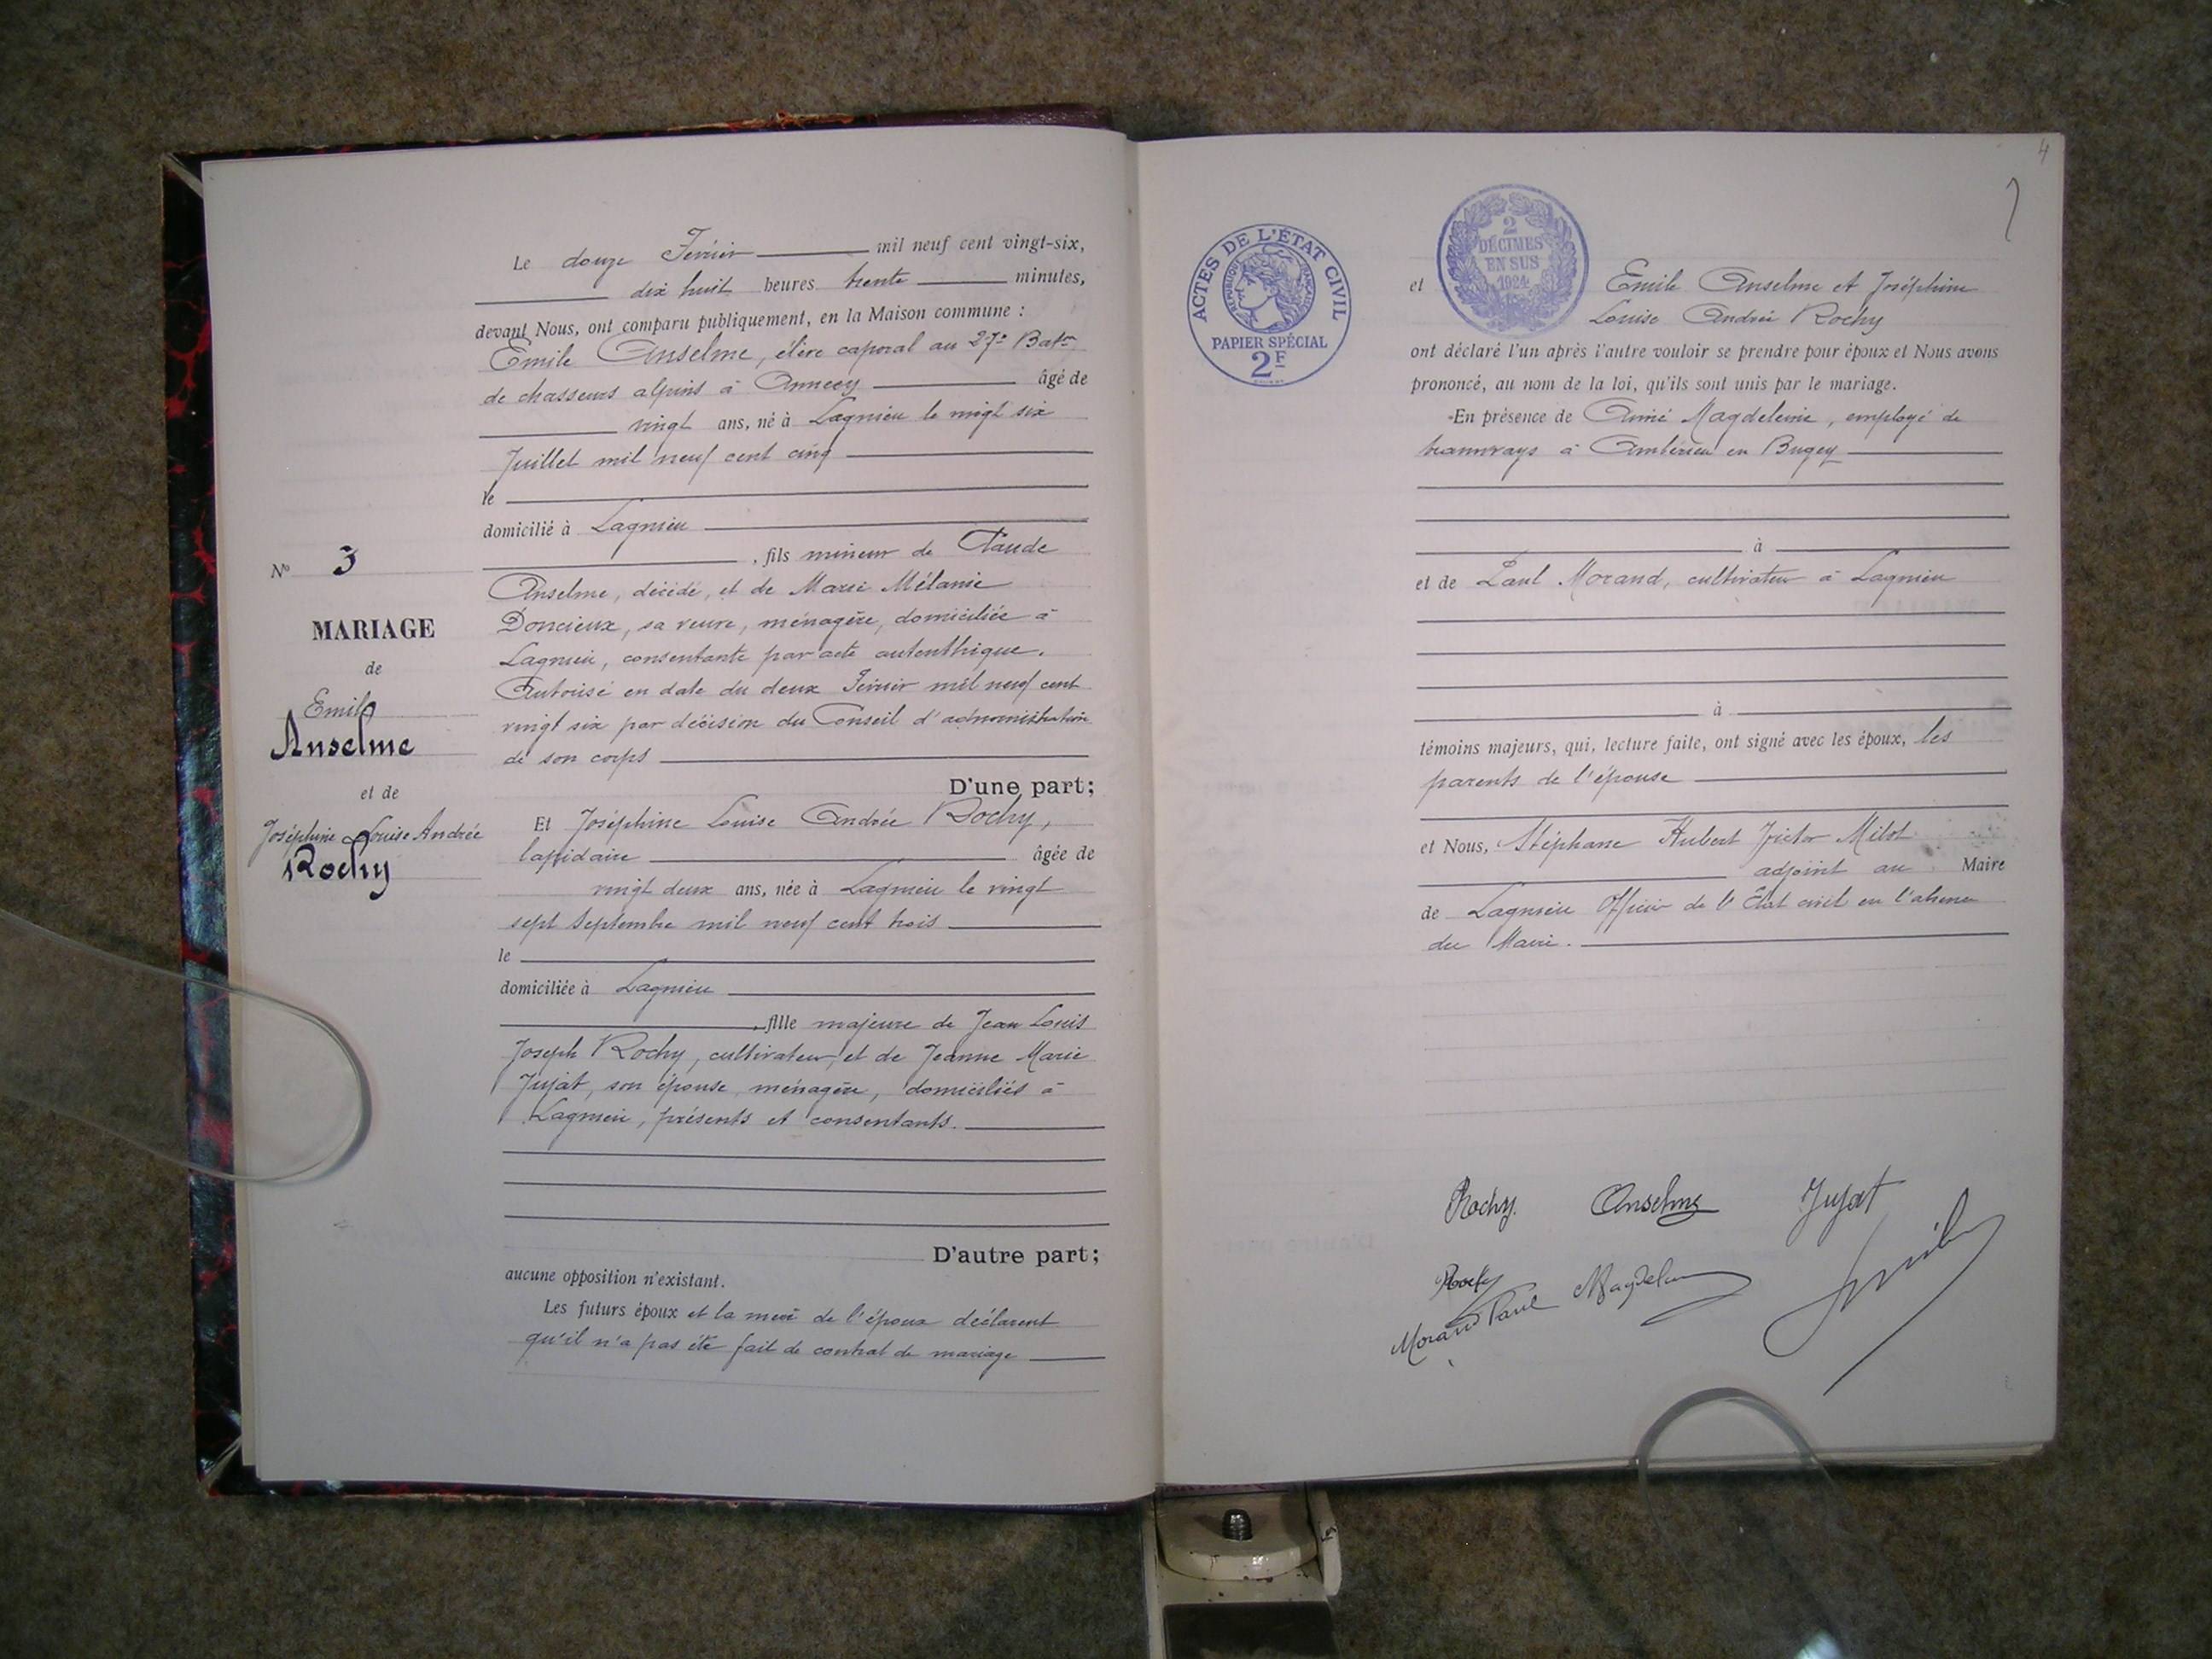 Le douze Février mil neuf cent vingt-six,
dix huit heures trente minutes,
devant Nous, ont comparu publiquement, en la Maison commune :
Emile Anselme, élève caporal au 27e Baton
de chasseurs alpins à Annecy âgé de
vingt ans, né à Lagnieu le vingt six
Juillet mil neuf cent cinq
le
domicilié à Lagnieu
, fils mineur de Claude
Anselme, décédé, et de Marie Mélanie
Doncieux, sa veuve, ménagère, domiciliée à
Lagnieu, consentante par acte autenthique.
Autorisé en date du deux Février mil neuf cent
vingt six par décision du Conseil d'administration
de son corps
D'une part;
Et Joséphine Louise Andrée Rochy,
lapidaire âgée de
vingt deux ans, née à Lagnieu le vingt
sept Septembre mil neuf cent trois
le
domiciliée à Lagnieu
, fille majeure de Jean Louis
Joseph Rochy, cultivateur, et de Jeanne Marie
Jujat, son épouse, ménagère, domiciliés à
Lagnieu, présents et consentants.
D'autre part;
aucune opposition n'existant.
Les futurs époux et la mère de l'époux déclarent
qu'il n'a pas été fait de contrat de mariage
No 3
MARIAGE
de
Emile
Anselme
et de
Joséphine Louise Andrée
Rochy
4
ACTES DE L'ÉTAT CIVIL
RÉPUBLIQUE FRANÇAISE
PAPIER SPÉCIAL
2F
2
DÉCIMES
EN SUS
1924
et Emile Anselme et Joséphine
Louise Andrée Rochy
ont déclaré l'un après l'autre vouloir se prendre pour époux et Nous avons
prononcé, au nom de la loi, qu'ils sont unis par le mariage.
En présence de Aimé Magdeleine, employé de
tramways à Ambérieu en Bugey
à
et de Paul Morand, cultivateur à Lagnieu
à
témoins majeurs, qui, lecture faite, ont signé avec les époux, les
parents de l'épouse
et Nous, Stéphane Hubert Victor Milot
adjoint au Maire
de Lagnieu Officier de l'Etat civil en l'absence
du Maire.
Rochy. Anselme Jujat
Rochy Magdelein
Morand Paul